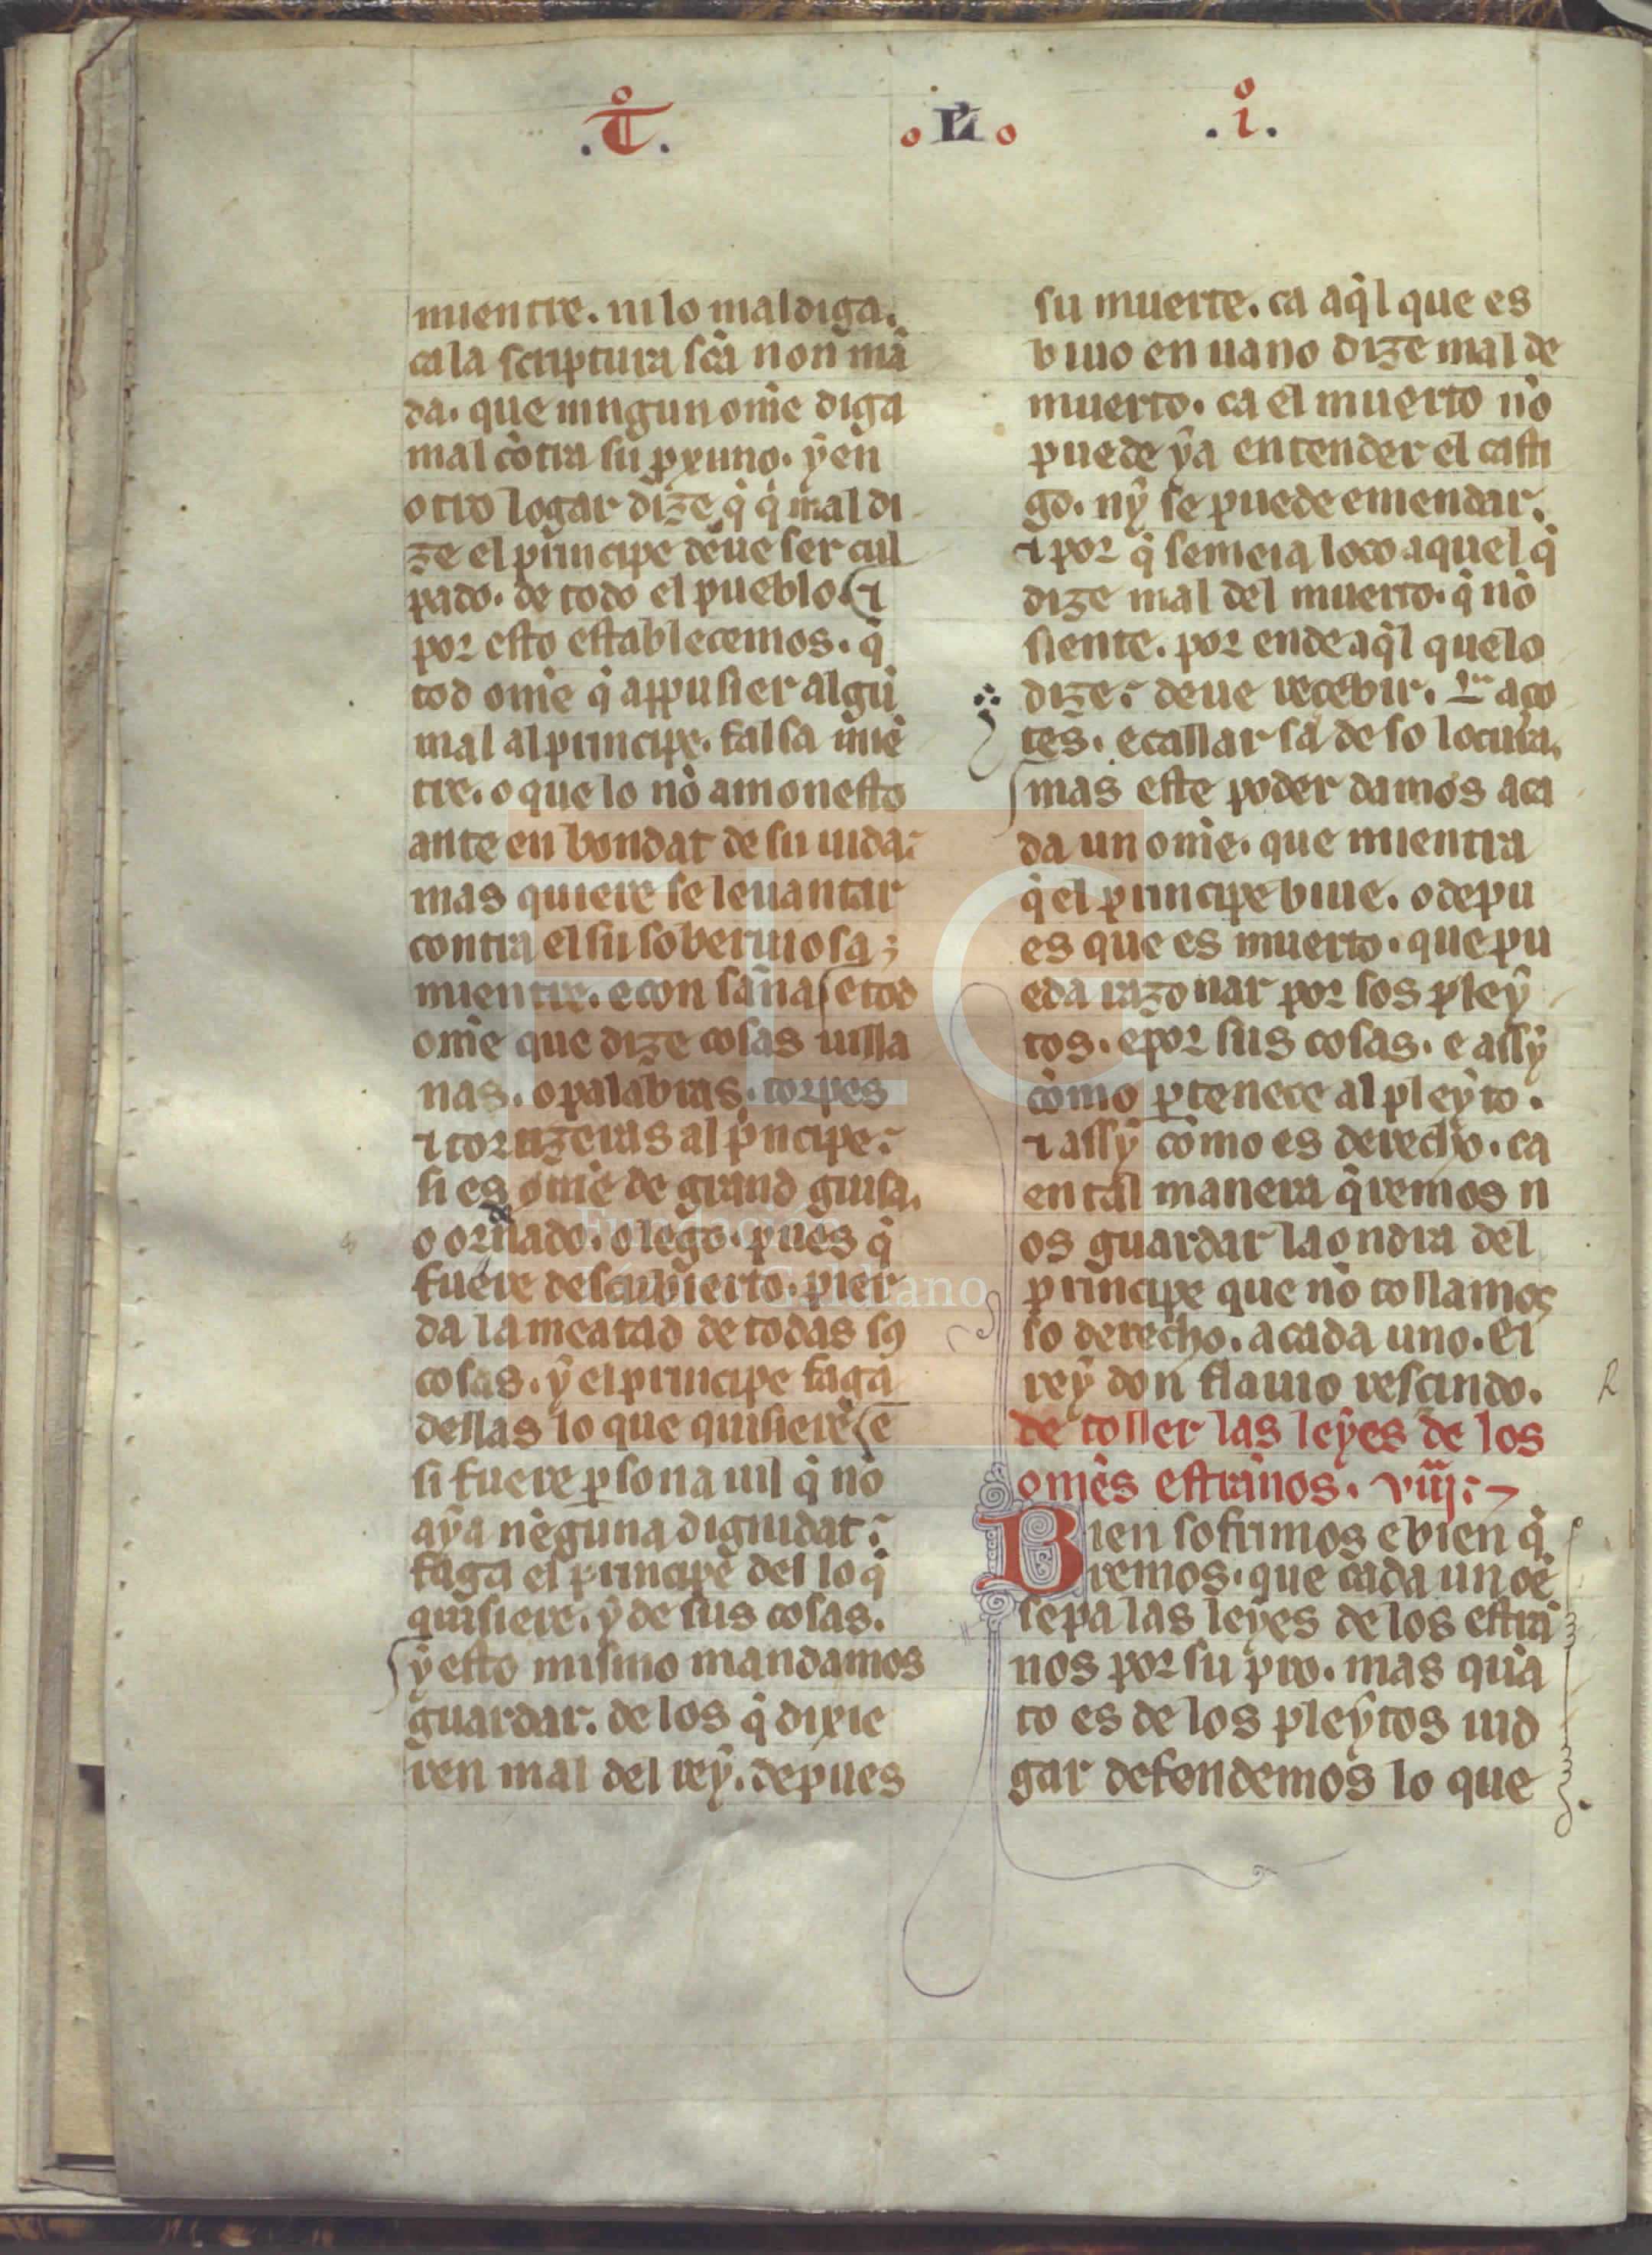 .T̊. o L̃I o .i̊.
muentre. ni lo maldiga.
ca la scriptura sc̃a non mã
da. que ningun om̃e diga
mal cõtra su p̱xuno. ẏ en
otro logar dize q̃ q̃ mal di
ze el prĩncipe deue ser cul
pado. de todo el pueblo. ⁊
por esto establecemos. q̃
tod om̃e q̃ appusier algũ
mal al principe. falsa miẽ
tre. o que lo nõ amonesto
ante en bondat de su uida.
mas quiere se leuantar
contra el su soberuiosa
mientre. e con saña e tod
om̃e que dize cosas uilla
nas. o palabras. torpes
⁊ tortizeras al p̃ncipe.
si es om̃e de grand guisa.
o ornado. o lego. pues q̃
fuere descubierto. pier
da la meatad de todas sꝯ
cosas. ẏ el principe faga
dellas lo que quisiere e
si fuere p̱sona uil q̃ nõ
aẏa nẽguna dignidat.
faga el principe del lo q̃
quisiere. ẏ de sus cosas.
ẏ esto mismo mandamos
guardar. de los q̃ dixie
ren mal del reẏ. depues
su muerte. ca aq̃l que es
biuo en uano dize mal de
muerto. ca el muerto nõ
puede ẏa entender el casti
go. nẏ se puede emendar.
⁊ por q̃ semeia loco aquel q̃
dize mal del muerto. q̃ nõ
siente. por ende aq̃l que lo
dize. deue recebir. L aço
tes. e callar sa de so locura.
mas este poder damos a ca
da un om̃e. que mientra
q̃ el principe biue. o depu
es que es muerto. que pu
eda razonar por sos pleẏ
tos. e por sus cosas. e assẏ
como p̱tenece al pleẏto.
⁊ assẏ como es derecho. ca
en tal manera q̃remos n
os guardar la ondra del
principe que nõ tollamos
so derecho. a cada uno. El
reẏ don flauio rescindo. R
de toller las leẏes de los
om̃es estrãnos. viiij.
Bien sofrimos e bien q̃
remos. que cada un oẽ
sepa las leẏes de los estra
nos por su pro. mas quã
to es de los pleẏtos iud
gar defendemos lo que
FLG
Fundación
Lázaro Galdiano